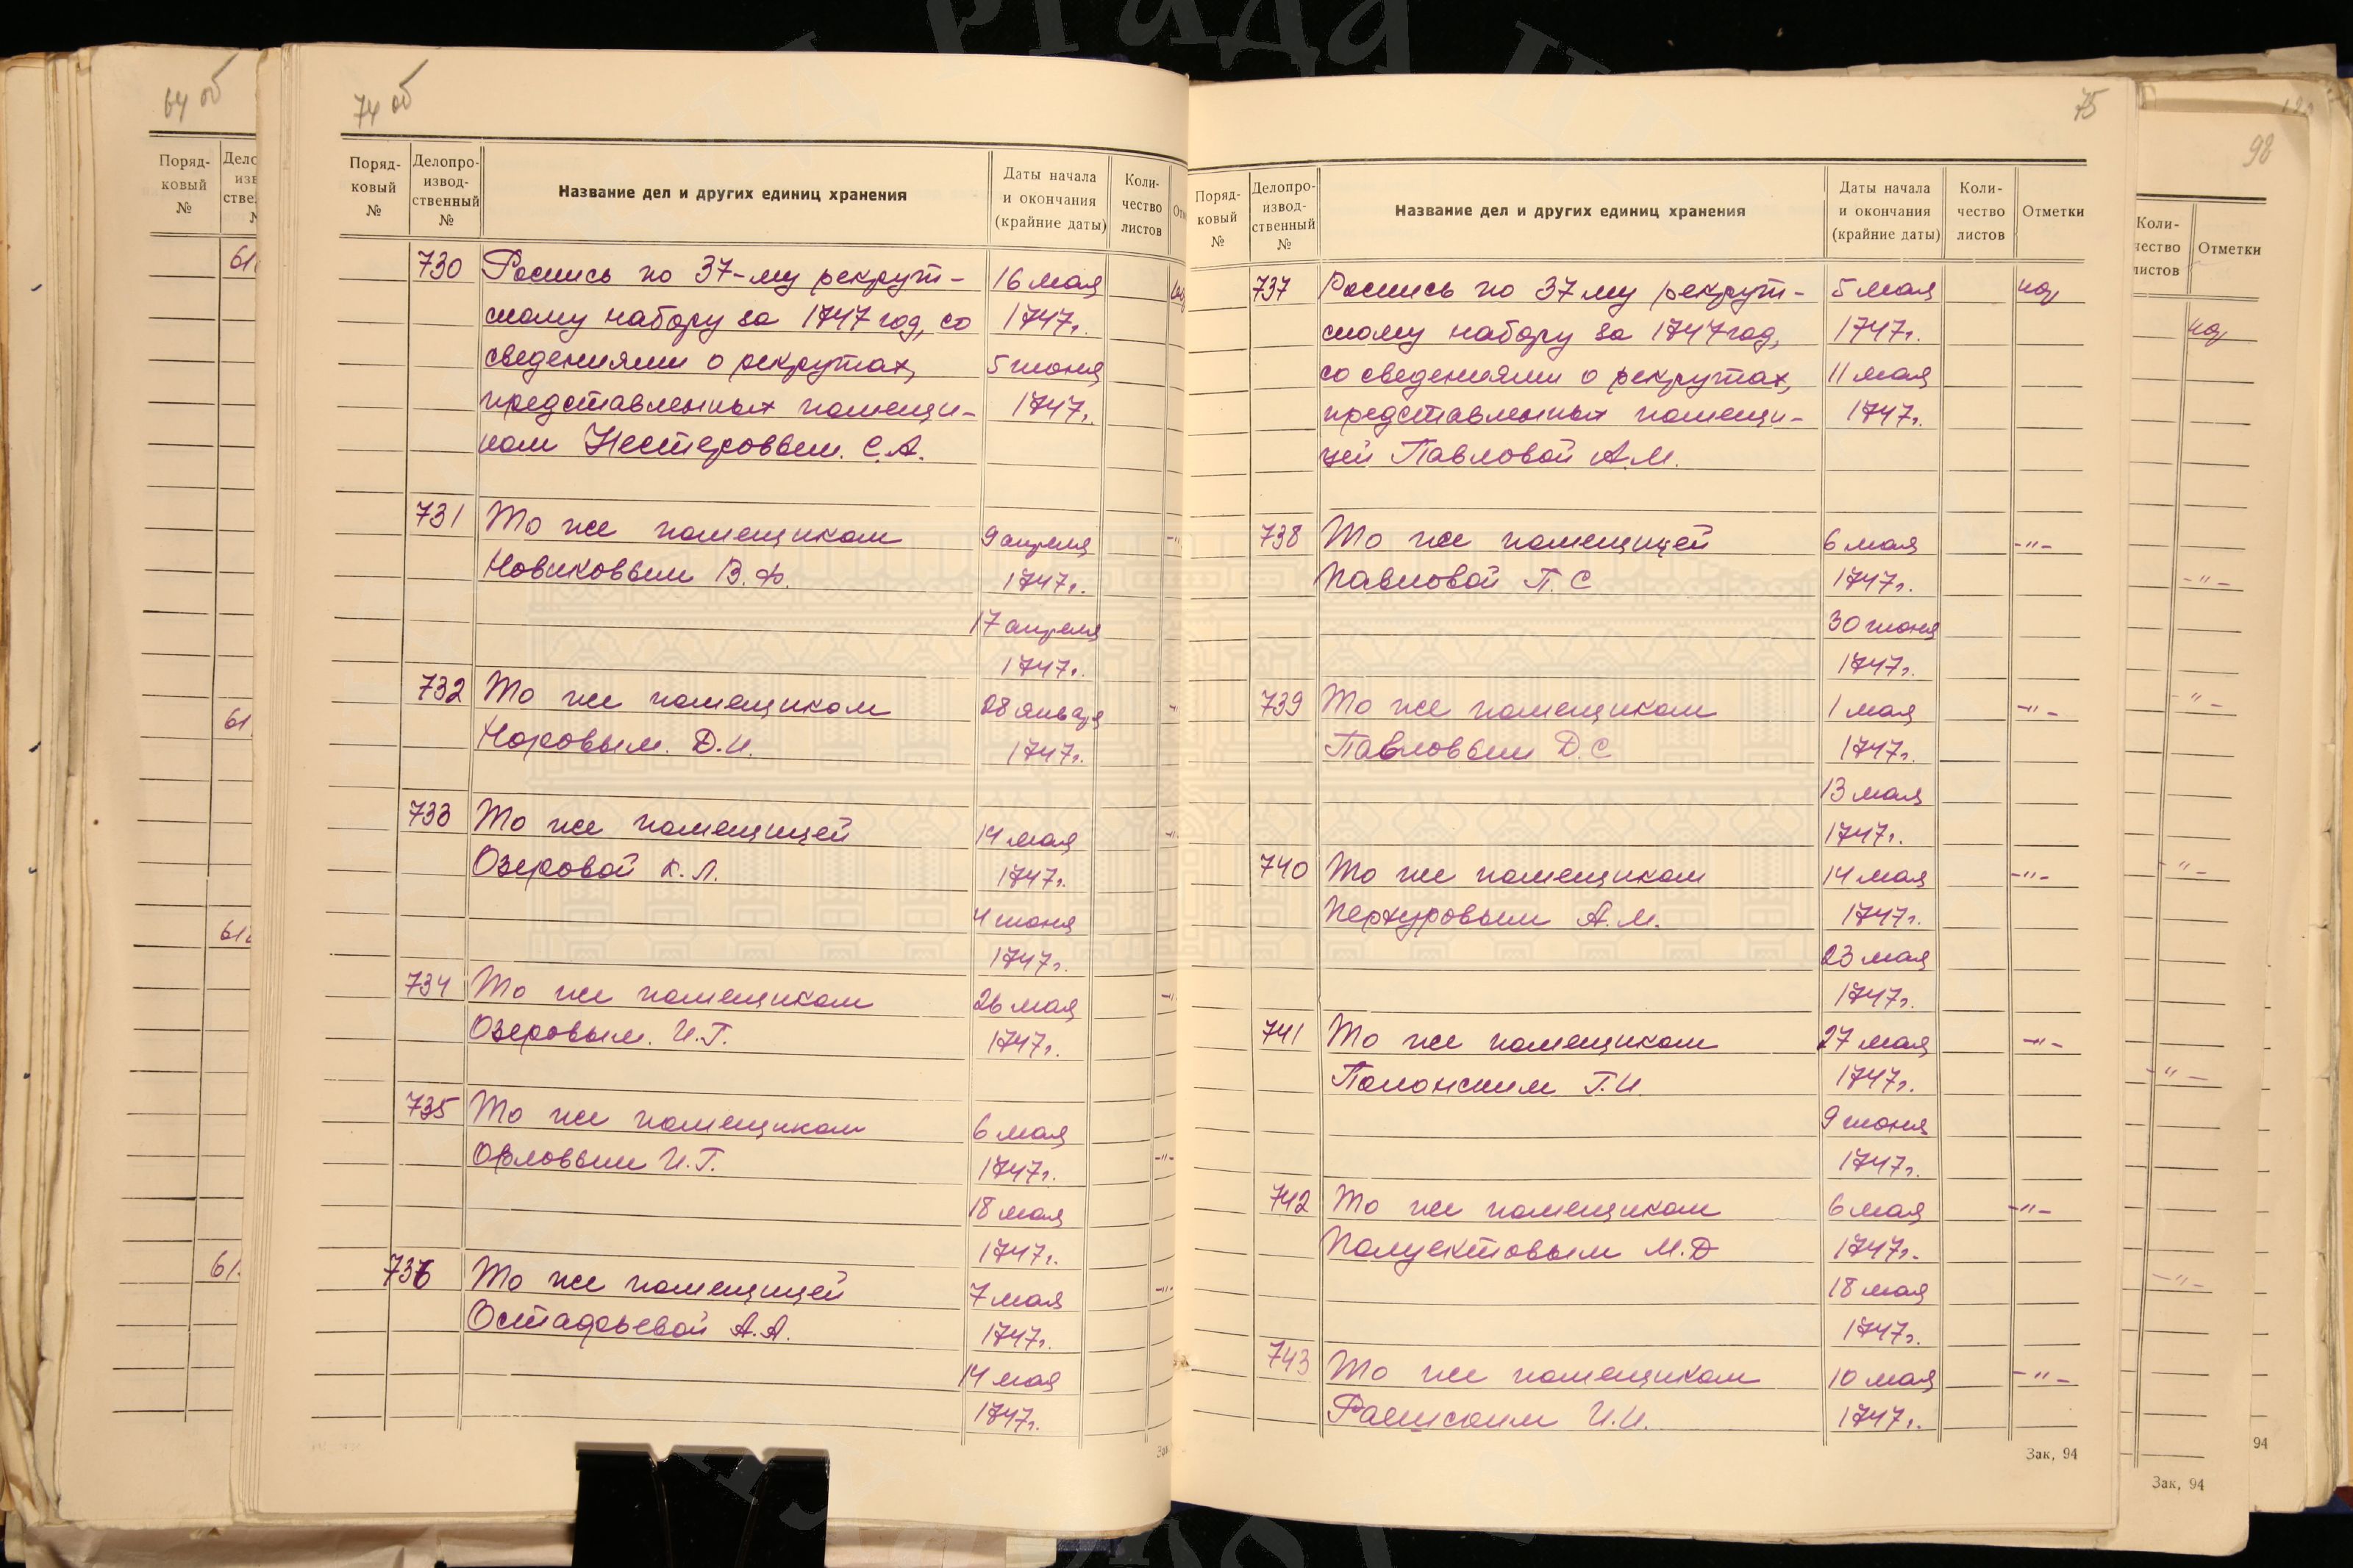 64 об
Поряд-
ковый
№
74 об
Поряд-
ковый
№
Делопро-
извод-
ственный
№
Название дел и других единиц хранения
Даты начала
и окончания
(крайние даты)
Коли-
чество
листов
730 Роспись по 37-му рекрут- 16 мая
скому набору за 1747 год, со 1747г.
сведениями о рекрутах, 5 июня
представленных помещи- 1747г.
ком Нестеровым. С.А.
731 То же помещиком 9 апреля
Новиковым В.Ф. 1747г.
17 апреля
1747г.
732 То же помещиком 28 января
Норовым. Д.И. 1747г.
733 То же помещицей 14 мая
Озеровой К.Л. 1747г.
4 июня
1747г.
734 То же помещиком 26 мая
Озеровым. И.Г. 1747г.
735 То же помещиком 6 мая -"-
Орловым И.Г. 1747г.
18 мая
1747г.
736 То же помещицей 7 мая -"-
Остафьевой А.А. 1747г.
14 мая
1747г.
75
Поряд-
ковый
№
Делопро-
извод-
ственный
№
Название дел и других единиц хранения
Даты начала
и окончания
(крайние даты)
Коли-
чество
листов
Отметки
737 Роспись по 37 му рекрут- 5 мая
скому набору за 1747 год, 1747г.
со сведениями о рекрутах, 11 мая
представленных помещи- 1747г.
цей Павловой А.М.
738 То же помещицей 6 мая -"-
Павловой П.С 1747г.
30 июня
1747г.
739 То же помещиком 1 мая -"-
Павловым Д.С 1747г.
13 мая
1747г.
740 То же помещиком 14 мая -"-
Перхуровым А.М. 1747г.
23 мая
1747г.
741 То же помещиком 27 мая -"-
Полонским Г.И. 1747г.
9 июня
1747г.
742 То же помещиком 6 мая -"-
Полуектовым М.Д 1747г.
18 мая
1747г.
743 То же помещиком 10 мая -"-
Раевским И.И. 1747г.
Зак, 94
98
Отметки
-"-
-"-
-"-
-"-
-"-
Зак, 94
94